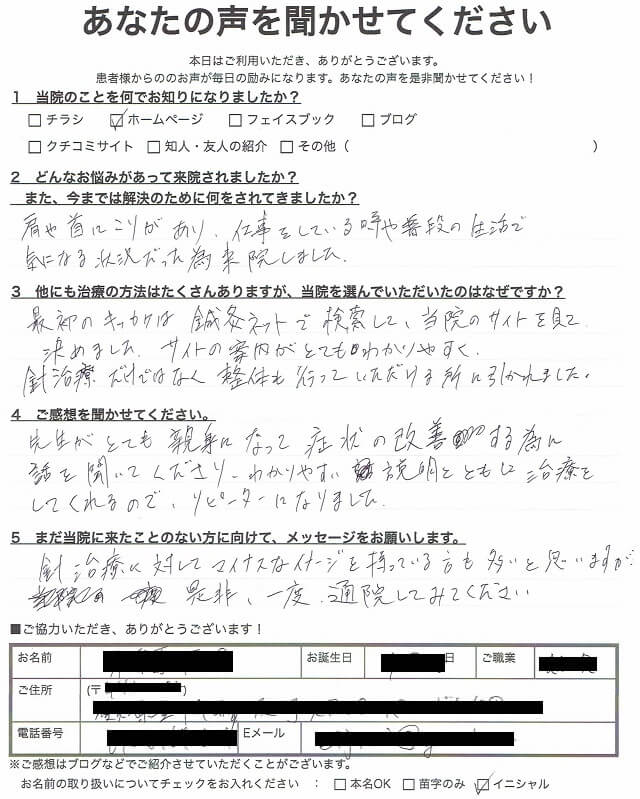 あなたの声を聞かせてください
本日はご利用いただき、ありがとうございます。
患者様からののお声が毎日の励みになります。あなたの声を是非聞かせてください！
1 当院のことを何でお知りになりましたか？
□ チラシ ☑ ホームページ □ フェイスブック □ ブログ
□ クチコミサイト □ 知人・友人の紹介 □ その他（ ）
2 どんなお悩みがあって来院されましたか？
また、今までは解決のために何をされてきましたか？
肩や首にこりがあり、仕事をしている時や普段の生活で
気になる状況だった為来院しました。
3 他にも治療の方法はたくさんありますが、当院を選んでいただいたのはなぜですか？
最初のキッカケは 鍼灸ネットで検索して、当院のサイトを見て
決めました。サイトの案内がとてもわかりやすく、
針治療だけではなく整体も行っていただける所に引かれました。
4 ご感想を聞かせてください。
先生がとても親身になって症状の改善する為に
話を聞いてくださり、わかりやすい説明とともに治療を
してくれるので、リピーターになりました。
5 まだ当院に来たことのない方に向けて、メッセージをお願いします。
針治療に対してマイナスなイメージを持っている方も多いと思いますが、
是非、一度、通院してみてください
■ご協力いただき、ありがとうございます！
お名前 お誕生日 日 ご職業
ご住所 (〒
電話番号 Eメール
※ご感想はブログなどでご紹介させていただくことがございます。
お名前の取り扱いについてチェックをお入れください ： □ 本名OK □ 苗字のみ ☑ イニシャル